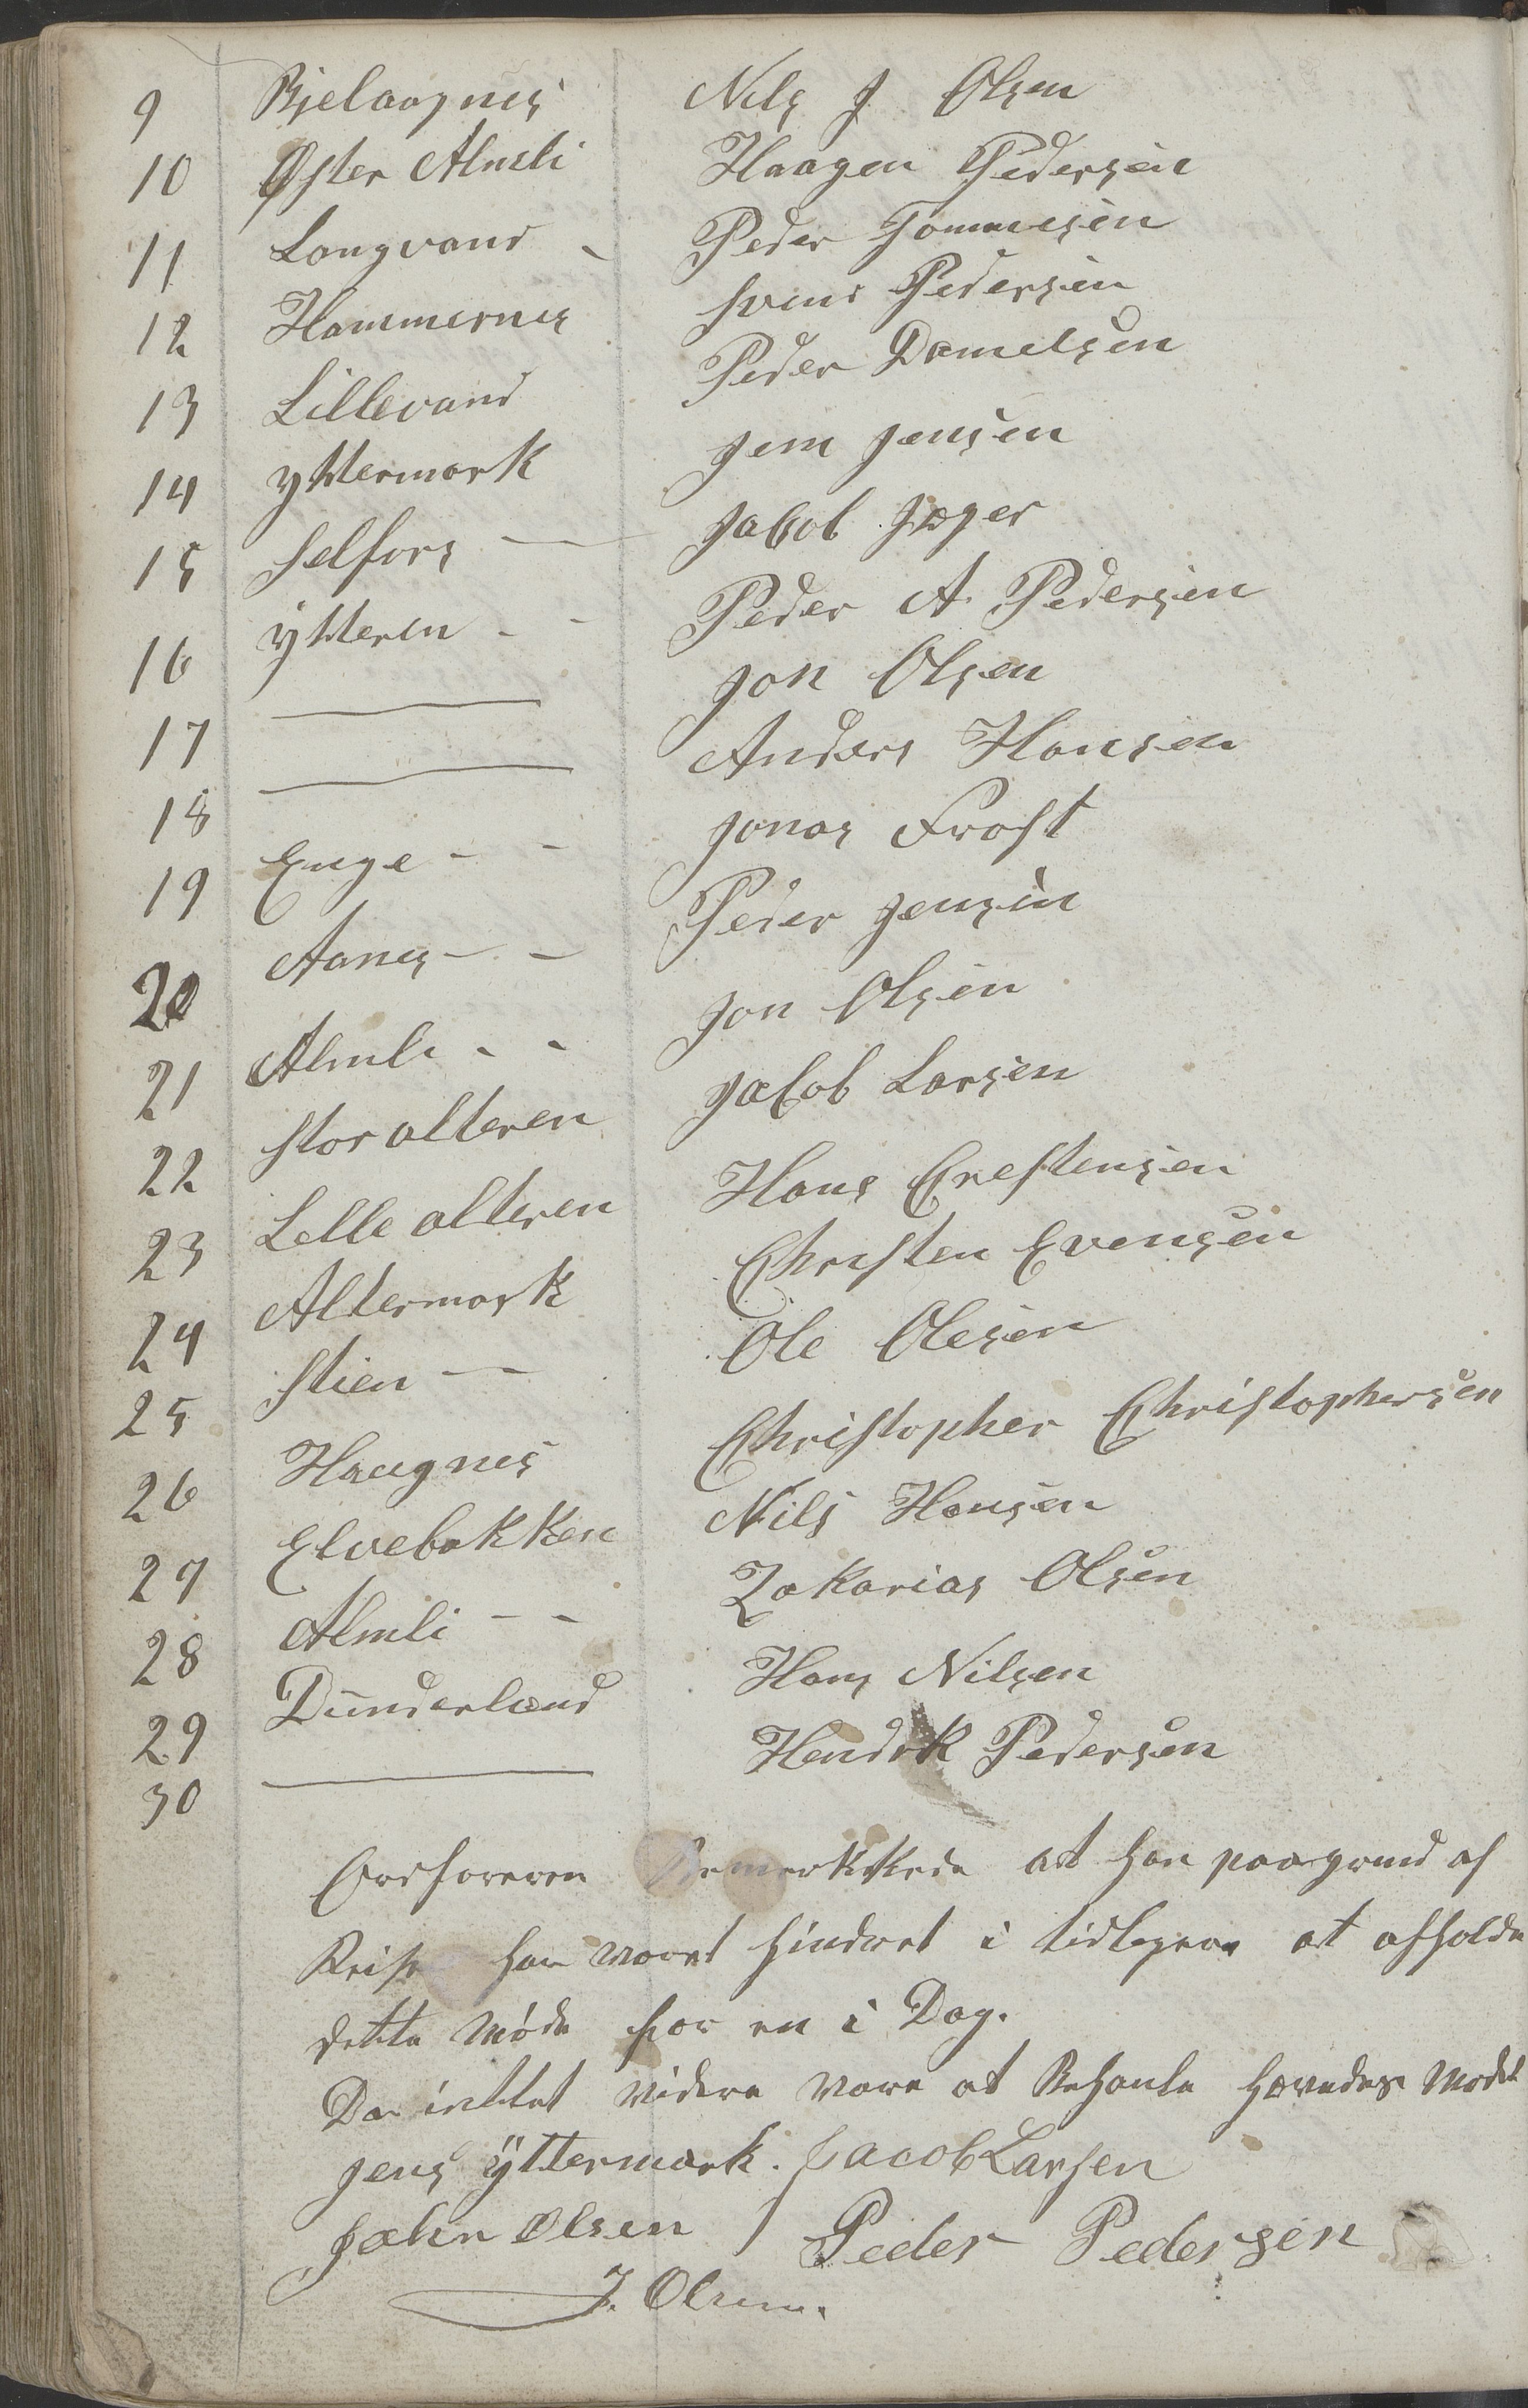 9 Bjelaagnes Nils J Olsen
10 Øster Almli Haagen Pedersen
11 Langvand - Peder Tommesen
12 Hammernes Svend Pedersen
13 Lillevand Peder Danielsen
14 Yttermark Jens Jensen
15 Selfors — Jakob Jæger
16 Ytteren - - Peder A Pedersen
17 — Jon Olsen
18 — Anders Hansen
19 Enge - - Jonas Frost
20 Aanes - - Peder Jensen
21 Almli - - Jon Olsen
22 Stor alteren Jakob Larsen
23 Lille alteren Hans Crestensen
24 Altermark Christen Evensen
25 Stien — Ole Olesen
26 Haugnes Christopher Christophersen
27 Elvebakken Nils Hansen
28 Almli - - Zakarias Olsen
29 Dunderland Hans Nilsen
30 — Hendrik Pedersen
Ordføreren Bemerkkede at han paagrund af
Reise har været hindret i tidligere at afholde
dette Møde før en i Dag.
Da inttet videre være at Behanle hævedes Mødet
Jens Yttermark. Jacob Larsen
John Olsen / Peder Pedersen
J. Olsen.